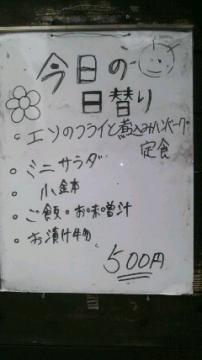 今日の
日替り
・エソのフライと煮込みハンバーグ
定食
・ミニサラダ
・小鉢
・ご飯・お味噌汁
・お漬け物
500円